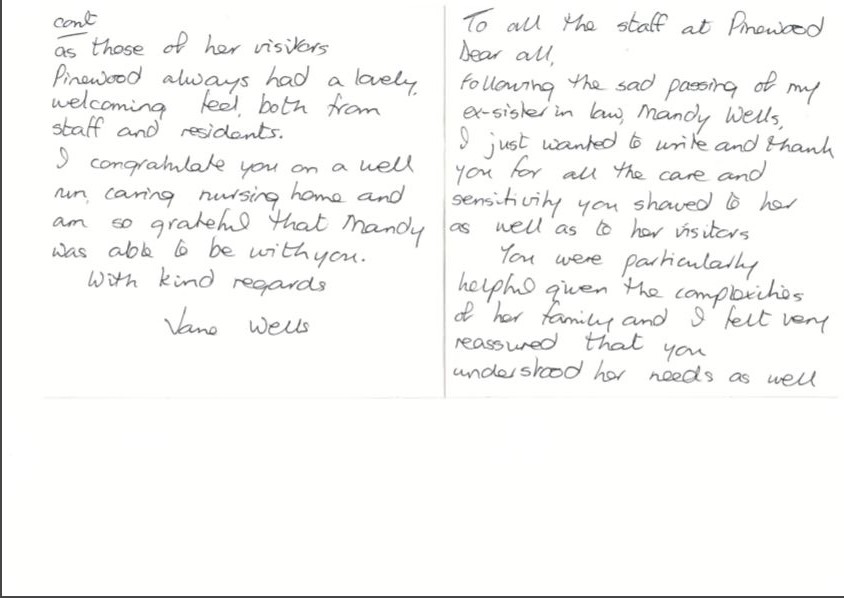 To all the staff at Pinewood
Dear all,
Following the sad passing of my
ex-sister in law, Mandy Wells,
I just wanted to write and thank
you for all the care and
sensitivity you showed to her
as well as to her visitors
You were particularly
helpful given the complexities
of her family and I felt very
reassured that you
understood her needs as well
cont
as those of her visitors
Pinewood always had a lovely,
welcoming feel, both from
staff and residents.
I congratulate you on a well
run, caring nursing home and
am so grateful that Mandy
was able to be with you.
With kind regards
Wells